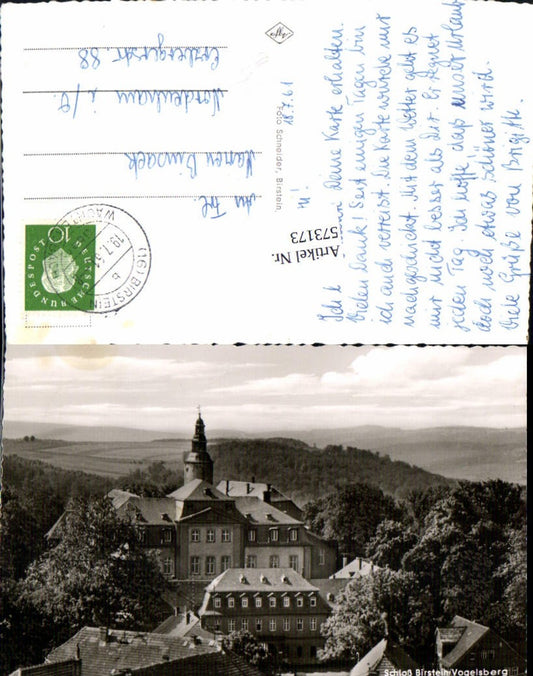 18.7.61
Ich habe Deine Karte erhalten.
Vielen Dank! Seit einigen Tagen bin
ich auch verreist. Die Karte wurde mir
nachgeschickt. Mit dem Wetter geht es
mir nicht besser als Dir. Er regnet
jeden Tag. Ich hoffe, daß unser Urlaub
doch noch etwas schöner wird.
Viele Grüße von Brigitte.
An Frl.
Karen
Nordenham i/O.
Erzbergerstr. 88
Foto Schneider, Birstein
Agfa
Artikel Nr.
573173
10
DEUTSCHE BUNDESPOST
(16) BIRSTEIN
19.7.61
b
Schloß Birstein/Vogelsberg